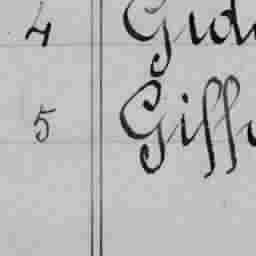 4 Gid
5 Giff